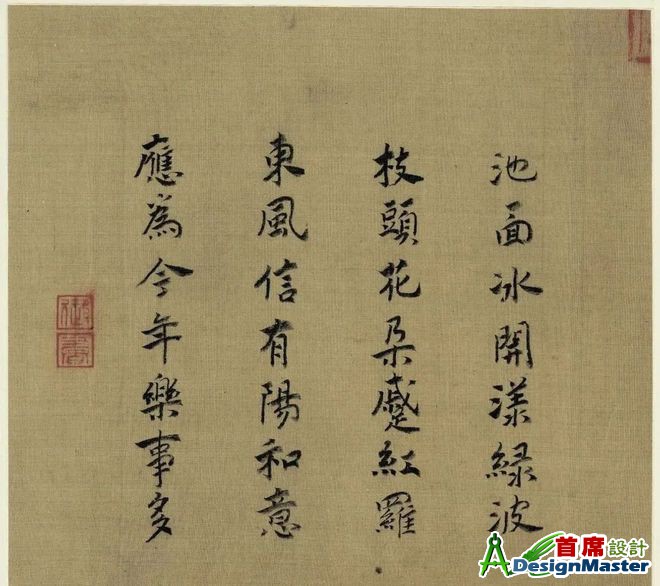 池面冰開漾綠波
枝頭花朵蹙紅羅
東風信有陽和意
應為今年樂事多
首席設計
ADesignMaster